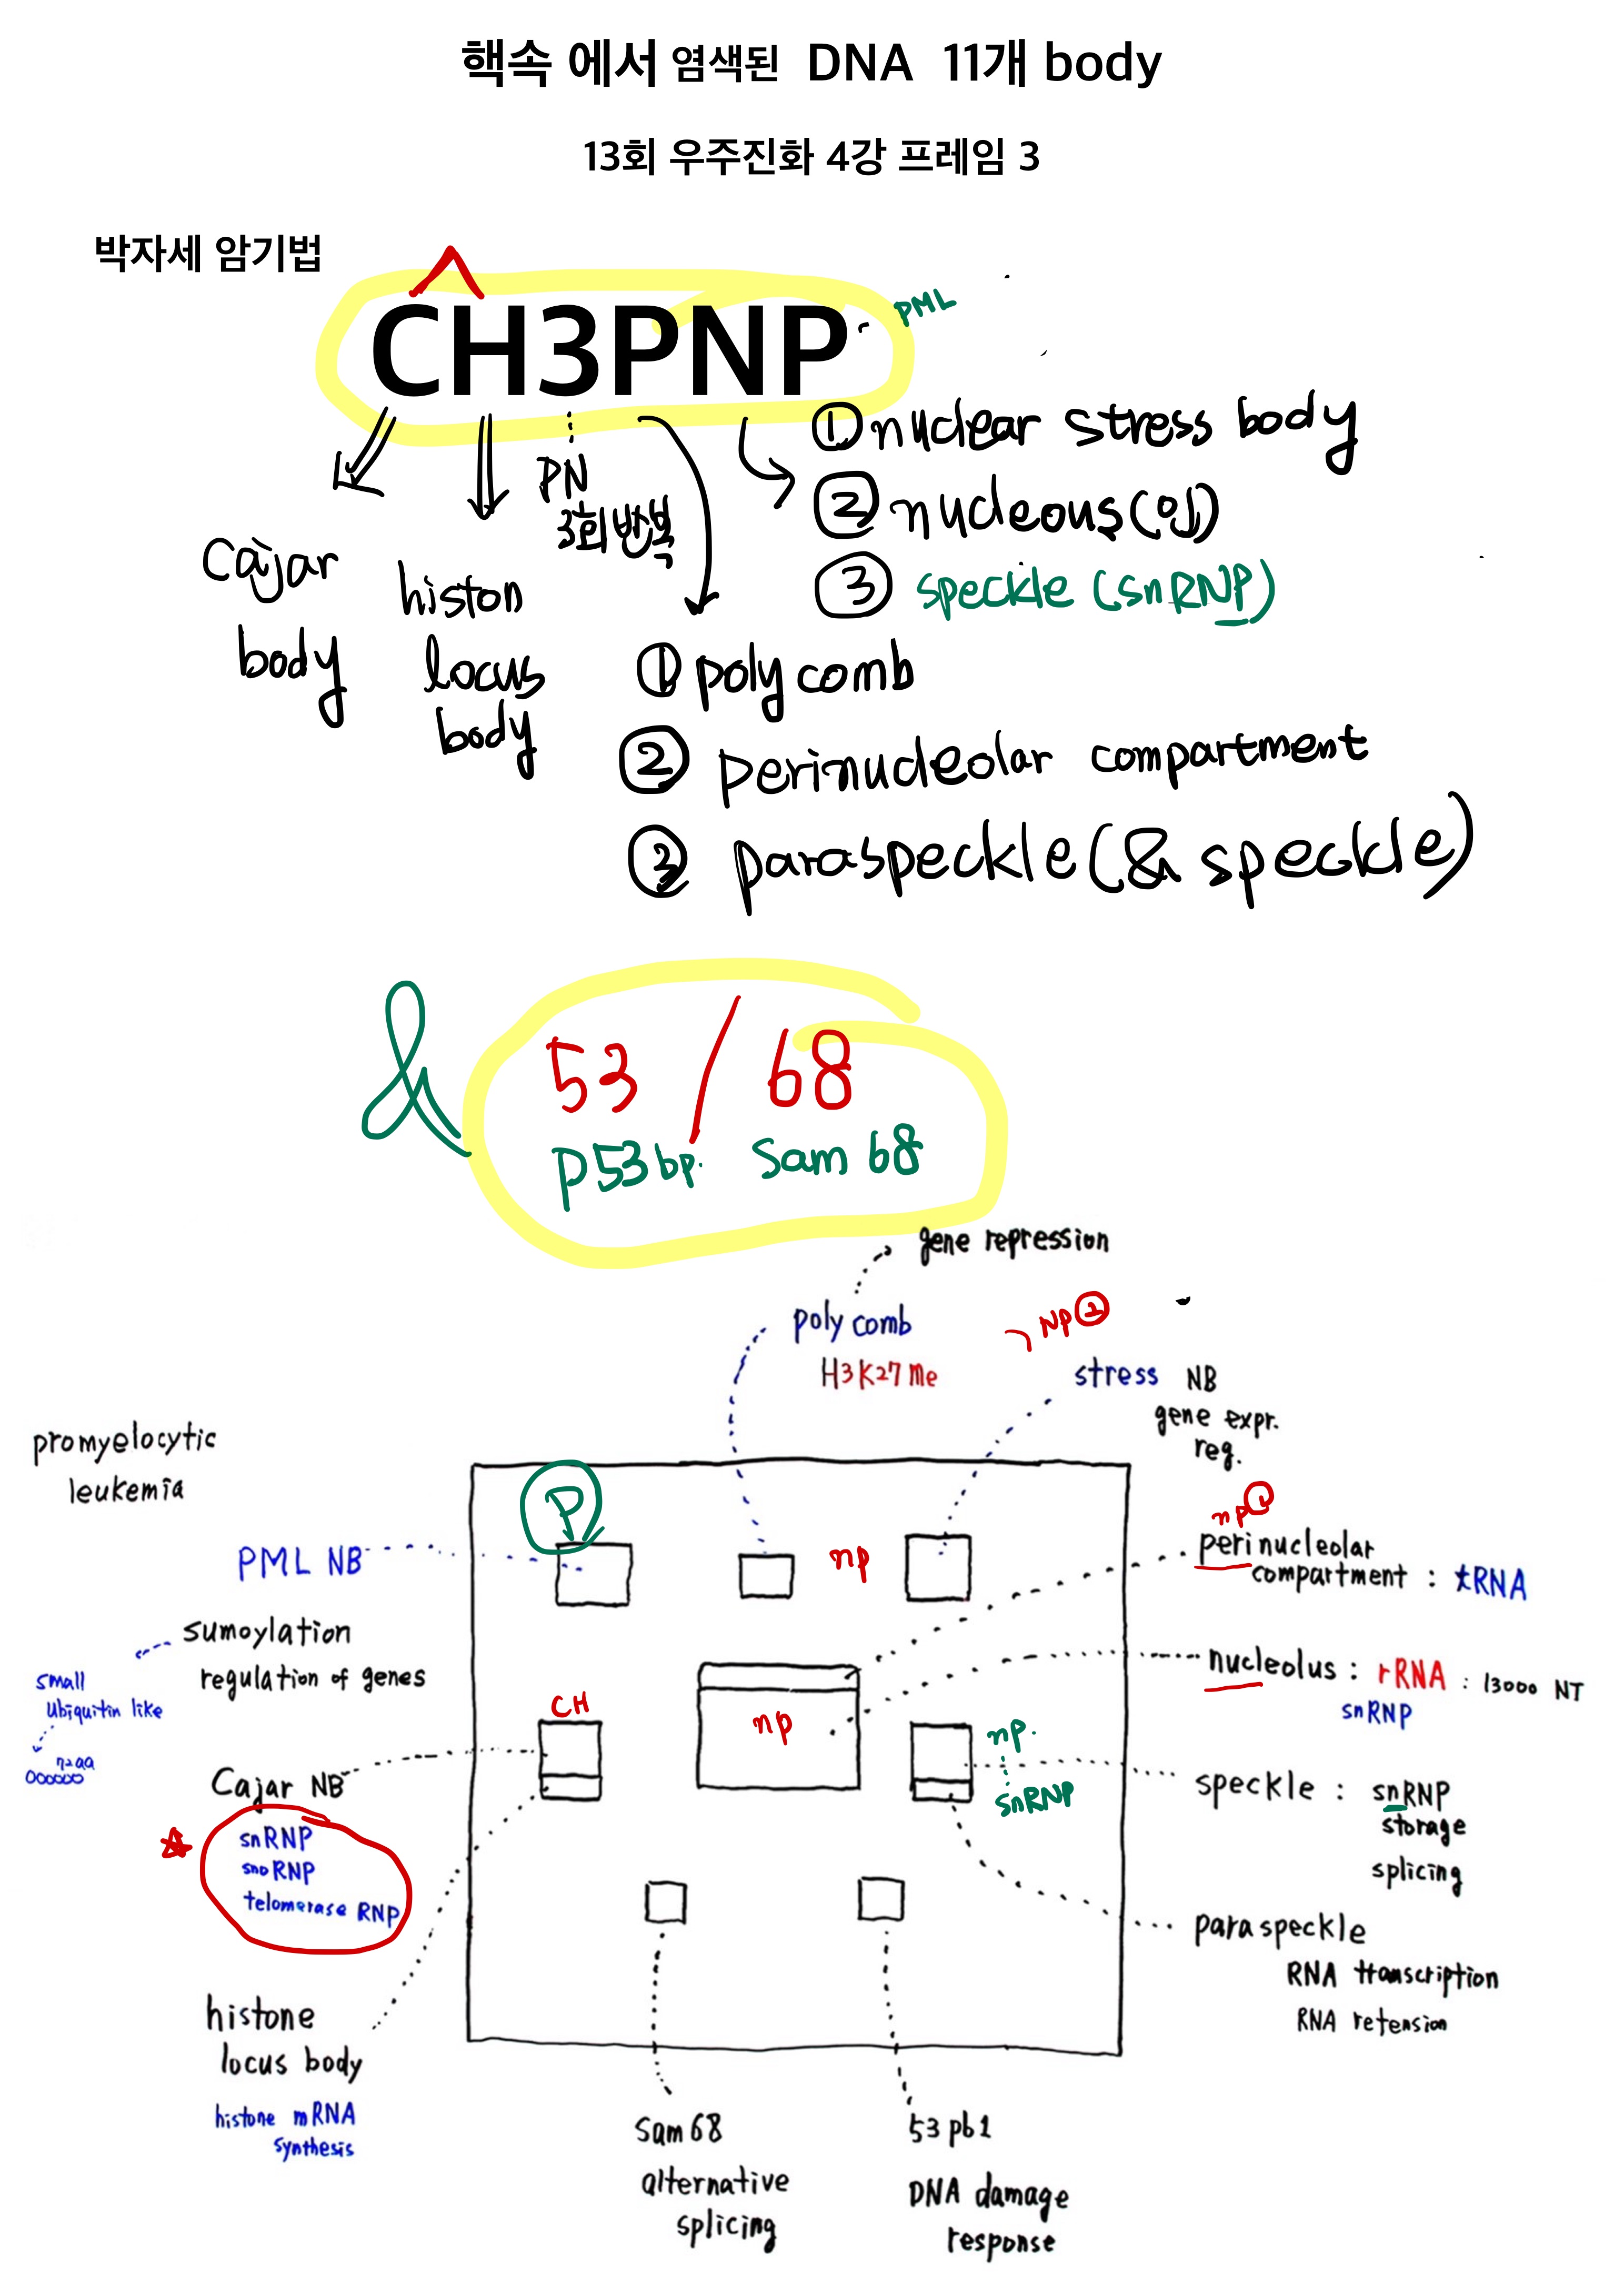 핵속 에서 염색된 DNA 11개 body
13회 우주진화 4강 프레임 3
박자세 암기법
CH3PNP
PML
PN
3회반복
Cajar
body
histon
locus
body
① nuclear stress body
② nucleous(인)
③ speckle (snRNP)
① poly comb
② perinucleolar compartment
③ paraspeckle (& speckle)
&
53 / 68
p53 bp. Sam 68
gene repression
poly comb
H3K27Me
NP②
stress NB
gene expr.
reg.
promyelocytic
leukemia
P
PML NB
np
np①
perinucleolar
compartment : tRNA
sumoylation
regulation of genes
small
Ubiquitin like
72aa
CH
np
nucleolus : rRNA : 13000 NT
snRNP
np.
snRNP
Cajar NB
snRNP
snoRNP
telomerase RNP
speckle : snRNP
storage
splicing
paraspeckle
RNA transcription
RNA retension
histone
locus body
histone mRNA
synthesis
Sam 68
alternative
splicing
53 pb1
DNA damage
response